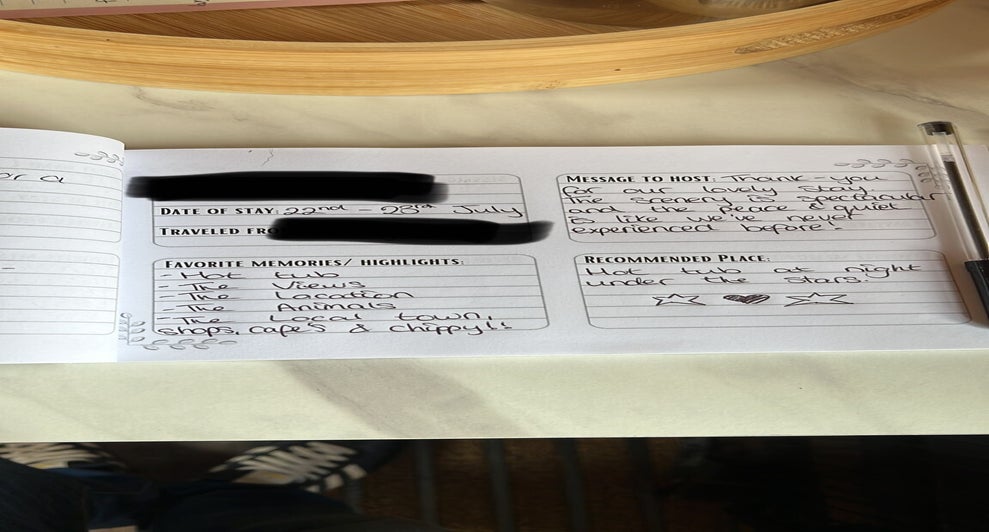 or a
DATE OF STAY: 22nd - 28th July
TRAVELED FRO
FAVORITE MEMORIES/ HIGHLIGHTS:
- Hot tub
- The Views
- The Location
- The Animals
- The Local town,
shops, cafe's & chippy!!
MESSAGE TO HOST: Thank-you
for our lovely stay.
The scenery is spectacular
and the peace & quiet
is like we've never
experienced before!
RECOMMENDED PLACE:
Hot tub at night
under the stars!